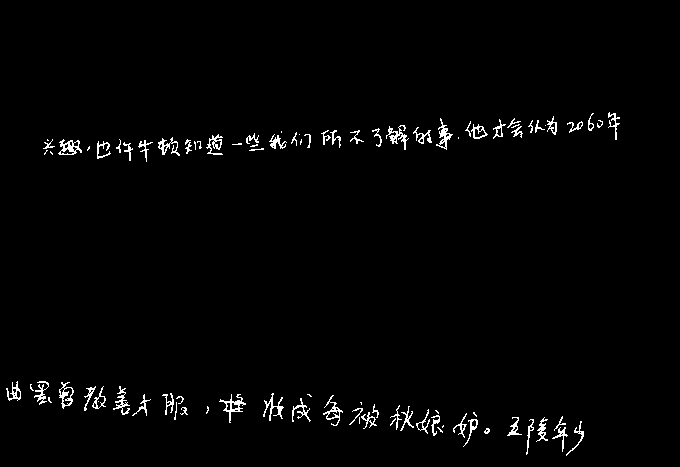 兴趣,也许牛顿知道一些我们所不了解的事.他才会认为2060年
曲罢曾教善才服,妆成每被秋娘妒。五陵年少